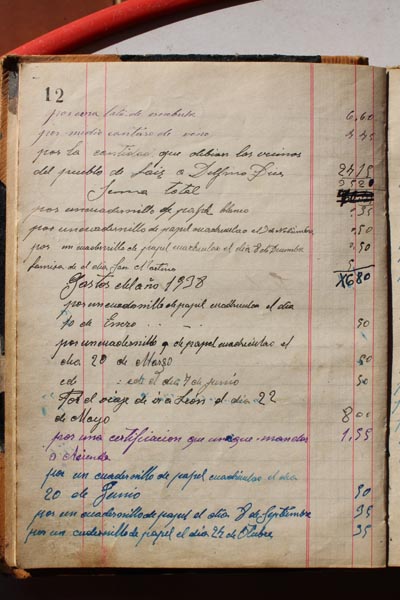 12
por una lata de escabeche 6,60
por medio cantaro de vino 4,45
por la cantidad que debian los vecinos
del pueblo de Luis a Delfino Diez 24 15
Suma total 25 20
por un cuadernillo de papel blanco 35
por un cuadernillo de papel cuadriculao el 2 de Noviembre 50
por un cuadernillo de papel cuadriculao el dia 8 de Diciembre 50
el dia San Martino 5
X680
Gastos del año 1938
por un cuadernillo de papel cuadriculao el dia
10 de Enero 50
por un cuadernillo de papel cuadriculao el
dia 20 de Marzo 50
el dia 7 de Junio 50
Por el viaje de ir a León el dia 22
de Mayo 8 00
por una certificacion que unque mandar
a Acienda 1,55
por un cuadernillo de papel cuadriculao el dia
20 de Junio 50
por un cuadernillo de papel el dia 8 de Septiembre 35
por un cudernillo de papel el dia 24 de Otubre 35